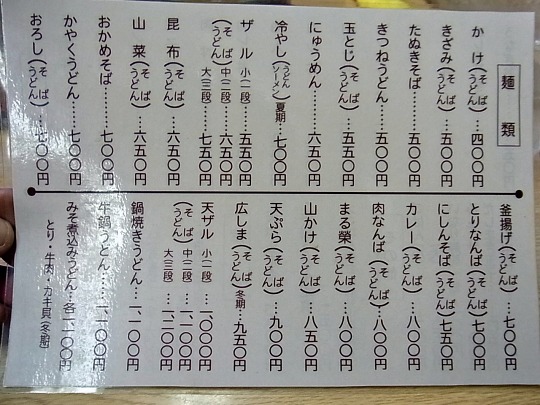 麺類
かけ(そばうどん)…四〇〇円
きざみ(そばうどん)…五〇〇円
たぬきそば……五〇〇円
きつねうどん……五〇〇円
玉とじ(そばうどん)…五五〇円
にゅうめん………六五〇円
冷やし(うどんソーメン)夏期…七〇〇円
ザル(そばうどん)
小(一段)…五五〇円
中(二段)…六五〇円
大(三段)…七五〇円
昆布(そばうどん)…六五〇円
山菜(そばうどん)…六五〇円
おかめそば……七〇〇円
かやくうどん……七〇〇円
おろし(そばうどん)…七〇〇円
釜揚げ(そばうどん)…七〇〇円
とりなんば(そばうどん)七〇〇円
にしんそば(そばうどん)七五〇円
カレー(そばうどん)…八〇〇円
肉なんば(そばうどん)…八〇〇円
まる榮(そばうどん)…八〇〇円
山かけ(そばうどん)…八五〇円
天ぷら(そばうどん)…九〇〇円
広しま(そばうどん)冬期…九五〇円
天ザル(そばうどん)
小(一段)…一、〇〇〇円
中(二段)…一、一〇〇円
大(三段)…一、二〇〇円
鍋焼きうどん……一、一〇〇円
牛鍋うどん……一、一〇〇円
みそ煮込みうどん…各一、一〇〇円
とり・牛肉・カキ貝(冬期)